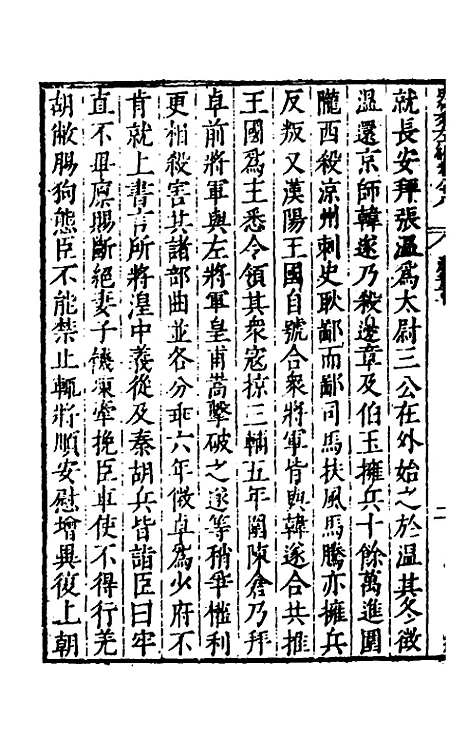 就長安拜張溫爲太尉三公在外始之於溫其冬徵
溫還京師韓遂乃殺邊章及伯玉擁兵十餘萬進圍
隴西殺涼州刺史耿鄙而鄙司馬扶風馬騰亦擁兵
反叛又漢陽王國自號合衆將軍皆與韓遂合共推
王國爲主悉令領其衆寇掠三輔五年圍陳倉乃拜
卓前將軍與左將軍皇甫嵩擊破之遂等稍爭權利
更相殺害其諸部曲並各分乖六年徵卓爲少府不
肯就上書言所將湟中義從及秦胡兵皆詣臣曰牢
直不畢廩賜斷絕妻子饑凍牽挽臣車使不得行羌
胡敝腸狗態臣不能禁止輒將順安慰增異復上朝